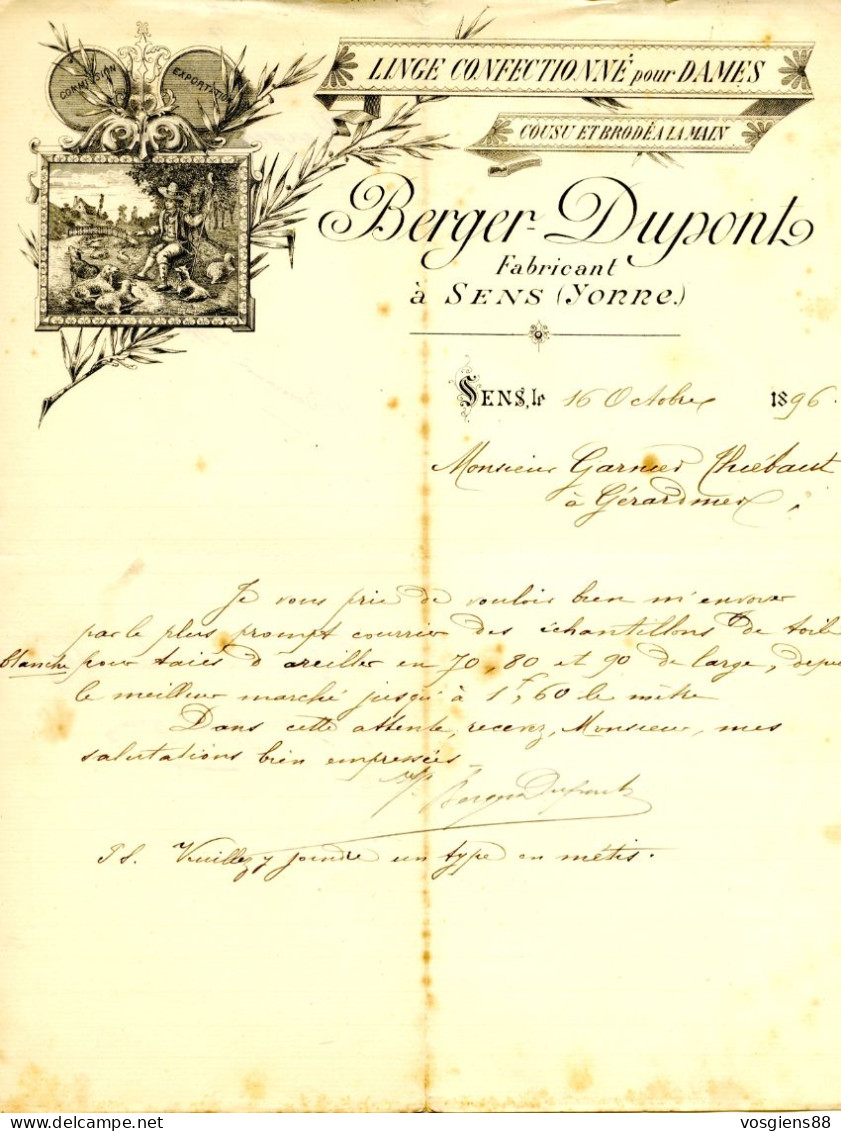 COMMISSION
EXPORTATION
LINGE CONFECTIONNÉ pour DAMES
COUSU ET BRODÉ A LA MAIN
Berger-Dupont
Fabricant
à SENS (Yonne.)
SENS, le 16 Octobre 1896.
Monsieur Garnier Thiébaut
à Gérardmer
Je vous prie de vouloir bien m'envoyer
par le plus prompt courrier des échantillons de toile
blanche pour taies d'oreiller en 70, 80 et 90 de large, depuis
le meilleur marché jusqu'à 1f,60 le mètre
Dans cette attente, recevez, Monsieur, mes
salutations bien empressées.
Berger Dupont
PS. Veuillez y joindre un type en métis.
vosgiens88